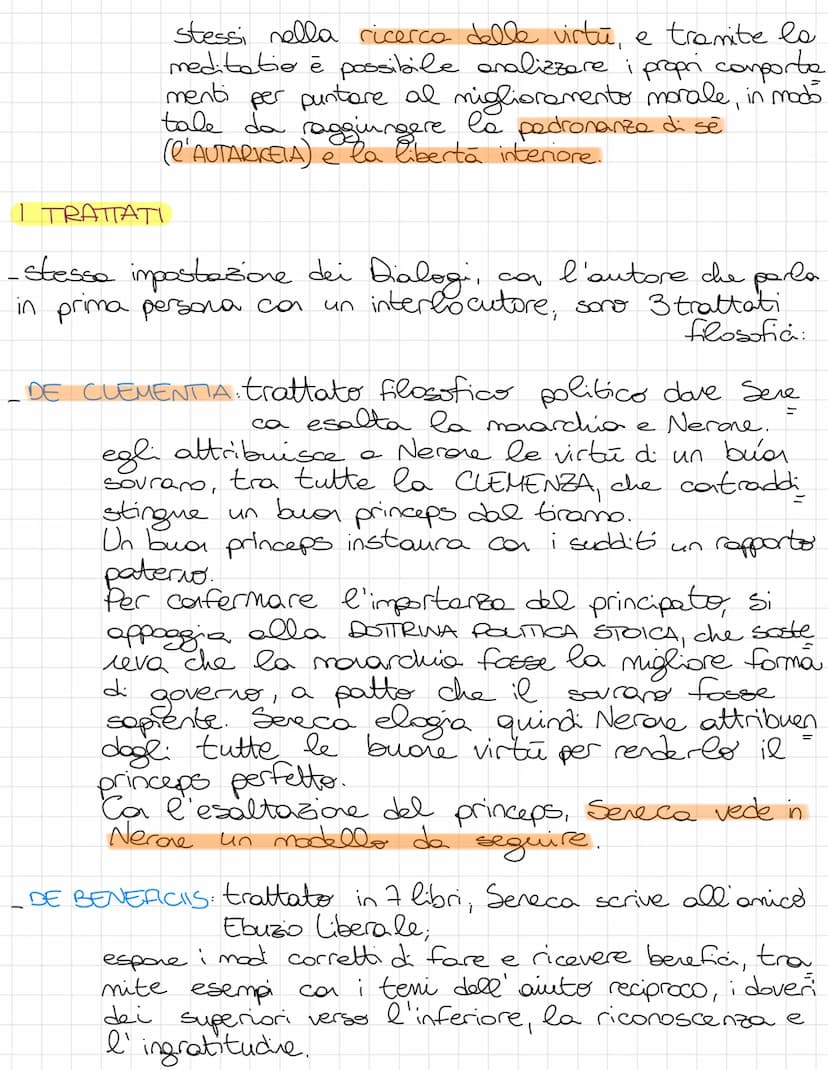 stessi nella ricerca della virtù, e tramite la
meditatio è possibile analizzare i propri comporta
menti per puntare al miglioramento morale, in modo
tale da raggiungere la padronanza di sé
(l'AUTARKEIA) e la libertà interiore.
I TRATTATI
- stessa impostazione dei Dialogi, con l'autore che parla
in prima persona con un interlocutore, sono 3 trattati
filosofici:
- DE CLEMENTIA: trattato filosofico politico dove Sene
ca esalta la monarchia e Nerone.
egli attribuisce a Nerone le virtù di un buon
sovrano, tra tutte la CLEMENZA, che contraddi
stingue un buon princeps dal tiranno.
Un buon princeps instaura con i sudditi un rapporto
paterno.
Per confermare l'importanza del principato, si
appoggia alla DOTTRINA POLITICA STOICA, che soste
neva che la monarchia fosse la migliore forma
di governo, a patto che il sovrano fosse
sapiente. Seneca elogia quindi Nerone attribuen
dogli tutte le buone virtù per renderlo il
princeps perfetto.
Con l'esaltazione del princeps, Seneca vede in
Nerone un modello da seguire.
- DE BENEFICIIS: trattato in 7 libri, Seneca scrive all'amico
Ebuzio Liberale;
espone i modi corretti di fare e ricevere benefici, tra
mite esempi con i temi dell'aiuto reciproco, i doveri
dei superiori verso l'inferiore, la riconoscenza e
l'ingratitudine.